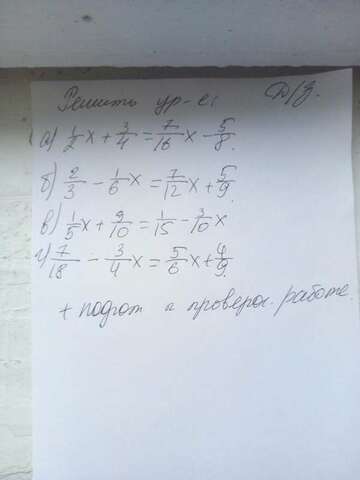 Решить ур-е: Д/з.
а) 1/2 x + 3/4 = 7/16 x - 5/8.
б) 2/3 - 1/6 x = 7/12 x + 5/9.
в) 1/5 x + 9/10 = 1/15 - 3/10 x
г) 7/18 - 3/4 x = 5/6 x + 4/9.
+ подгот к проверок. работе.